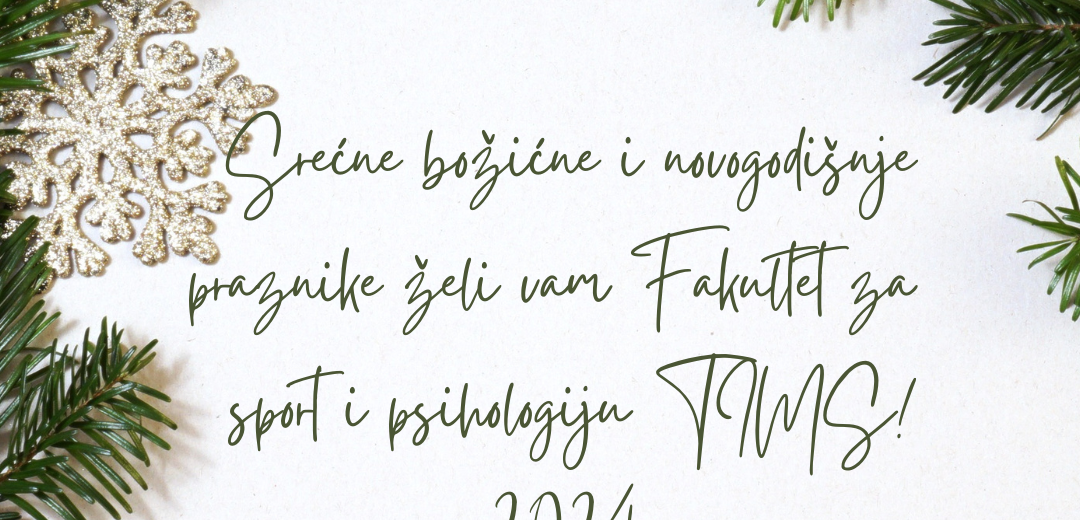 Srećne božićne i novogodišnje
praznike želi vam Fakultet za
sport i psihologiju TIMS!
2024